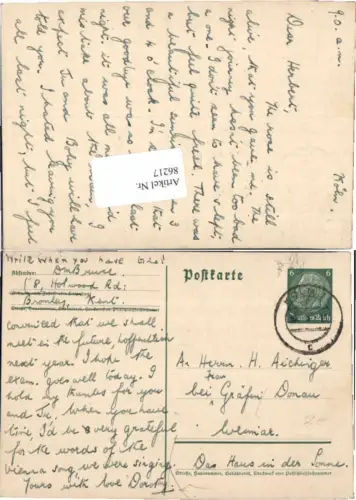 9.0. a.m. Köln.
Dear Herbert,
The rose is still
alive, that you gave me. The
night journey hasn't been too bad
a one. I don't seem to have slept
but feel quite fresh. There was
a beautiful sunrise between 3
and 4 o'clock. I'm that
our goodbye was last
night. it was all
mistake about the I
expect Ju and Baby will have
told you. I hated leaving you
all last night, but I feel
Artikel Nr.
86217
Write when you have time!
Absender:
58, Holwood Rd:
Bromley, Kent.
Postkarte
6 6
Deutsches Reich
convinced that we shall
meet in the future, hopefully
next year. I hope the
exam. goes well today. I
hold my thumbs for you
and Ju. When you have
time I'd be very grateful
for the words of the
Vienna song we were singing.
Yours with love Dorothy
An Herrn H. Aichinger
bei Gräfin Donau
Weimar.
Das Haus in der Sonne.
Straße, Hausnummer, Gebäudeteil, Stockwerk oder Postschließfachnummer